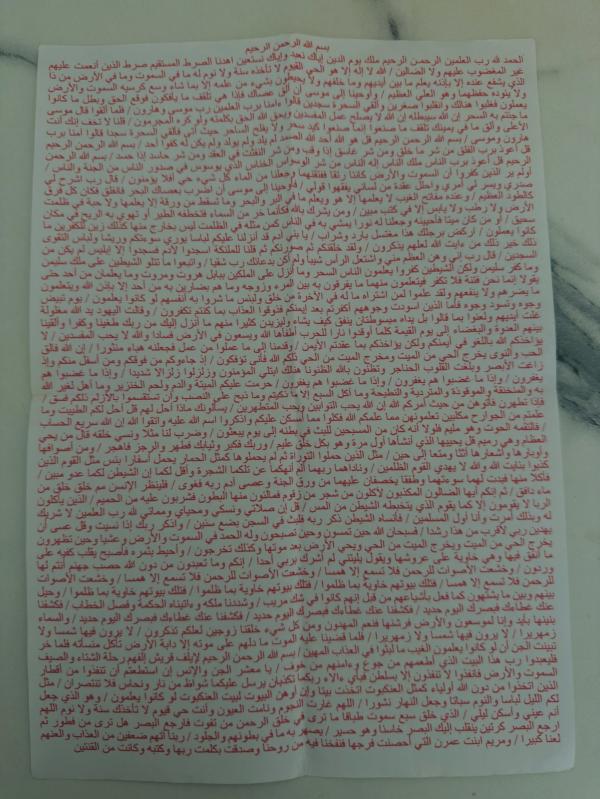 بسم الله الرحمن الرحيم
الحمد لله رب العلمين الرحمن الرحيم ملك يوم الدين إياك نعبد وإياك نستعين اهدنا الصرط المستقيم صرط الذين أنعمت عليهم
غير المغضوب عليهم ولا الضالين / الله لا إله إلا هو الحي القيوم لا تأخذه سنة ولا نوم له ما في السموت وما في الأرض من ذا
الذي يشفع عنده إلا بإذنه يعلم ما بين أيديهم وما خلفهم ولا يحيطون بشيء من علمه إلا بما شاء وسع كرسيه السموت والأرض
ولا يئوده حفظهما وهو العلي العظيم / وأوحينا إلى موسى أن ألق عصاك فإذا هي تلقف ما يأفكون فوقع الحق وبطل ما كانوا
يعملون فغلبوا هنالك وانقلبوا صغرين وألقي السحرة سجدين قالوا ءامنا برب العلمين رب موسى وهارون / فلما ألقوا قال موسى
ما جئتم به السحر إن الله سيبطله إن الله لا يصلح عمل المفسدين ويحق الله الحق بكلمته ولو كره المجرمون / قلنا لا تخف إنك أنت
الأعلى وألق ما في يمينك تلقف ما صنعوا إنما صنعوا كيد سحر ولا يفلح الساحر حيث أتى فألقي السحرة سجدا قالوا آمنا برب
هارون وموسى / بسم الله الرحمن الرحيم قل هو الله أحد الله الصمد لم يلد ولم يولد ولم يكن له كفوا أحد / بسم الله الرحمن الرحيم
قل أعوذ برب الفلق من شر ما خلق ومن شر غاسق إذا وقب ومن شر النفثت في العقد ومن شر حاسد إذا حسد / بسم الله الرحمن
الرحيم قل أعوذ برب الناس ملك الناس إله الناس من شر الوسواس الخناس الذي يوسوس في صدور الناس من الجنة والناس /
أولم ير الذين كفروا أن السموت والأرض كانتا رتقا ففتقنهما وجعلنا من الماء كل شيء حي أفلا يؤمنون / قال رب اشرح لي
صدري ويسر لي أمري واحلل عقدة من لساني يفقهوا قولي / فأوحينا إلى موسى أن اضرب بعصاك البحر فانفلق فكان كل فرق
كالطود العظيم / وعنده مفاتح الغيب لا يعلمها إلا هو ويعلم ما في البر والبحر وما تسقط من ورقة إلا يعلمها ولا حبة في ظلمت
الأرض ولا رطب ولا يابس إلا في كتب مبين / ومن يشرك بالله فكأنما خر من السماء فتخطفه الطير أو تهوي به الريح في مكان
سحيق / أو من كان ميتا فأحيينه وجعلنا له نورا يمشي به في الناس كمن مثله في الظلمت ليس بخارج منها كذلك زين للكفرين ما
كانوا يعملون / اركض برجلك هذا مغتسل بارد وشراب / يا بني آدم قد أنزلنا عليكم لباسا يوري سوءتكم وريشا ولباس التقوى
ذلك خير ذلك من ءايت الله لعلهم يذكرون / ولقد خلقنكم ثم صورنكم ثم قلنا للملئكة اسجدوا لآدم فسجدوا إلا إبليس لم يكن من
السجدين / قال رب إني وهن العظم مني واشتعل الرأس شيبا ولم أكن بدعائك رب شقيا / واتبعوا ما تتلو الشيطين على ملك سليمن
وما كفر سليمن ولكن الشيطين كفروا يعلمون الناس السحر وما أنزل على الملكين ببابل هروت ومروت وما يعلمان من أحد حتى
يقولا إنما نحن فتنة فلا تكفر فيتعلمون منهما ما يفرقون به بين المرء وزوجه وما هم بضارين به من أحد إلا بإذن الله ويتعلمون
ما يضرهم ولا ينفعهم ولقد علموا لمن اشتراه ما له في الآخرة من خلق ولبئس ما شروا به أنفسهم لو كانوا يعلمون / يوم تبيض
وجوه وتسود وجوه فأما الذين اسودت وجوههم أكفرتم بعد إيمنكم فذوقوا العذاب بما كنتم تكفرون / وقالت اليهود يد الله مغلولة
غلت أيديهم ولعنوا بما قالوا بل يداه مبسوطتان ينفق كيف يشاء وليزيدن كثيرا منهم ما أنزل إليك من ربك طغينا وكفرا وألقينا
بينهم العدوة والبغضاء إلى يوم القيمة كلما أوقدوا نارا للحرب أطفأها الله ويسعون في الأرض فسادا والله لا يحب المفسدين / لا
يؤاخذكم الله باللغو في أيمنكم ولكن يؤاخذكم بما عقدتم الأيمن / وقدمنا إلى ما عملوا من عمل فجعلنه هباء منثورا / إن الله فالق
الحب والنوى يخرج الحي من الميت ومخرج الميت من الحي ذلكم الله فأنى تؤفكون / إذ جاءوكم من فوقكم ومن أسفل منكم وإذ
زاغت الأبصر وبلغت القلوب الحناجر وتظنون بالله الظنونا هنالك ابتلي المؤمنون وزلزلوا زلزالا شديدا / وإذا ما غضبوا هم
يغفرون / وإذا ما غضبوا هم يغفرون / وإذا ما غضبوا هم يغفرون / حرمت عليكم الميتة والدم ولحم الخنزير وما أهل لغير الله
به والمنخنقة والموقوذة والمتردية والنطيحة وما أكل السبع إلا ما ذكيتم وما ذبح على النصب وأن تستقسموا بالأزلم ذلكم فسق /
فإذا تطهرن فأتوهن من حيث أمركم الله إن الله يحب التوابين ويحب المتطهرين / يسألونك ماذا أحل لهم قل أحل لكم الطيبت وما
علمتم من الجوارح مكلبين تعلمونهن مما علمكم الله فكلوا مما أمسكن عليكم واذكروا اسم الله عليه واتقوا الله إن الله سريع الحساب
/ فالتقمه الحوت وهو مليم فلولا أنه كان من المسبحين للبث في بطنه إلى يوم يبعثون / وضرب لنا مثلا ونسي خلقه قال من يحي
العظام وهي رميم قل يحييها الذي أنشأها أول مرة وهو بكل خلق عليم / وربك فكبر وثيابك فطهر والرجز فاهجر / ومن أصوافها
وأوبارها وأشعارها أثثا ومتعا إلى حين / مثل الذين حملوا التوراة ثم لم يحملوها كمثل الحمار يحمل أسفارا بئس مثل القوم الذين
كذبوا بئايت الله والله لا يهدي القوم الظلمين / وناداهما ربهما ألم أنهكما عن تلكما الشجرة وأقل لكما إن الشيطن لكما عدو مبين /
فأكلا منها فبدت لهما سوءتهما وطفقا يخصفان عليهما من ورق الجنة وعصى آدم ربه فغوى / فلينظر الإنسن مم خلق خلق من
ماء دافق / ثم إنكم أيها الضالون المكذبون لآكلون من شجر من زقوم فمالئون منها البطون فشربون عليه من الحميم / الذين يأكلون
الربا لا يقومون إلا كما يقوم الذي يتخبطه الشيطن من المس / قل إن صلاتي ونسكي ومحياي ومماتي لله رب العلمين لا شريك
له وبذلك أمرت وأنا أول المسلمين / فأنساه الشيطن ذكر ربه فلبث في السجن بضع سنين / واذكر ربك إذا نسيت وقل عسى أن
يهدين ربي لأقرب من هذا رشدا / فسبحان الله حين تمسون وحين تصبحون وله الحمد في السموت والأرض وعشيا وحين تظهرون
يخرج الحي من الميت ويخرج الميت من الحي ويحي الأرض بعد موتها وكذلك تخرجون / وأحيط بثمره فأصبح يقلب كفيه على
ما أنفق فيها وهي خاوية على عروشها ويقول يليتني لم أشرك بربي أحدا / إنكم وما تعبدون من دون الله حصب جهنم أنتم لها
وردون / وخشعت الأصوات للرحمن فلا تسمع إلا همسا / وخشعت الأصوات للرحمن فلا تسمع إلا همسا / وخشعت الأصوات
للرحمن فلا تسمع إلا همسا / فتلك بيوتهم خاوية بما ظلموا / فتلك بيوتهم خاوية بما ظلموا / فتلك بيوتهم خاوية بما ظلموا / وحيل
بينهم وبين ما يشتهون كما فعل بأشياعهم من قبل إنهم كانوا في شك مريب / وشددنا ملكه وءاتيناه الحكمة وفصل الخطاب / فكشفنا
عنك غطاءك فبصرك اليوم حديد / فكشفنا عنك غطاءك فبصرك اليوم حديد / فكشفنا عنك غطاءك فبصرك اليوم حديد / والسماء
بنينها بأييد وإنا لموسعون والأرض فرشنها فنعم المهدون ومن كل شيء خلقنا زوجين لعلكم تذكرون / لا يرون فيها شمسا ولا
زمهريرا / لا يرون فيها شمسا ولا زمهريرا / فلما قضينا عليه الموت ما دلهم على موته إلا دابة الأرض تأكل منسأته فلما خر
تبينت الجن أن لو كانوا يعلمون الغيب ما لبثوا في العذاب المهين / بسم الله الرحمن الرحيم لإيلف قريش إلفهم رحلة الشتاء والصيف
فليعبدوا رب هذا البيت الذي أطعمهم من جوع وءامنهم من خوف / يا معشر الجن والإنس إن استطعتم أن تنفذوا من أقطار
السموت والأرض فانفذوا لا تنفذون إلا بسلطن فبأي ءالاء ربكما تكذبان يرسل عليكما شواظ من نار ونحاس فلا تنتصران / مثل
الذين اتخذوا من دون الله أولياء كمثل العنكبوت اتخذت بيتا وإن أوهن البيوت لبيت العنكبوت لو كانوا يعلمون / وهو الذي جعل
لكم الليل لباسا والنوم سباتا وجعل النهار نشورا / اللهم غارت النجوم ونامت العيون وأنت حي قيوم لا تأخذك سنة ولا نوم اللهم
أنم عيني وأسكن ليلي / الذي خلق سبع سموت طباقا ما ترى في خلق الرحمن من تفوت فارجع البصر هل ترى من فطور ثم
ارجع البصر كرتين ينقلب إليك البصر خاسئا وهو حسير / يصهر به ما في بطونهم والجلود / ربنا آتهم ضعفين من العذاب والعنهم
لعنا كبيرا / ومريم ابنت عمرن التي أحصنت فرجها فنفخنا فيه من روحنا وصدقت بكلمت ربها وكتبه وكانت من القنتين